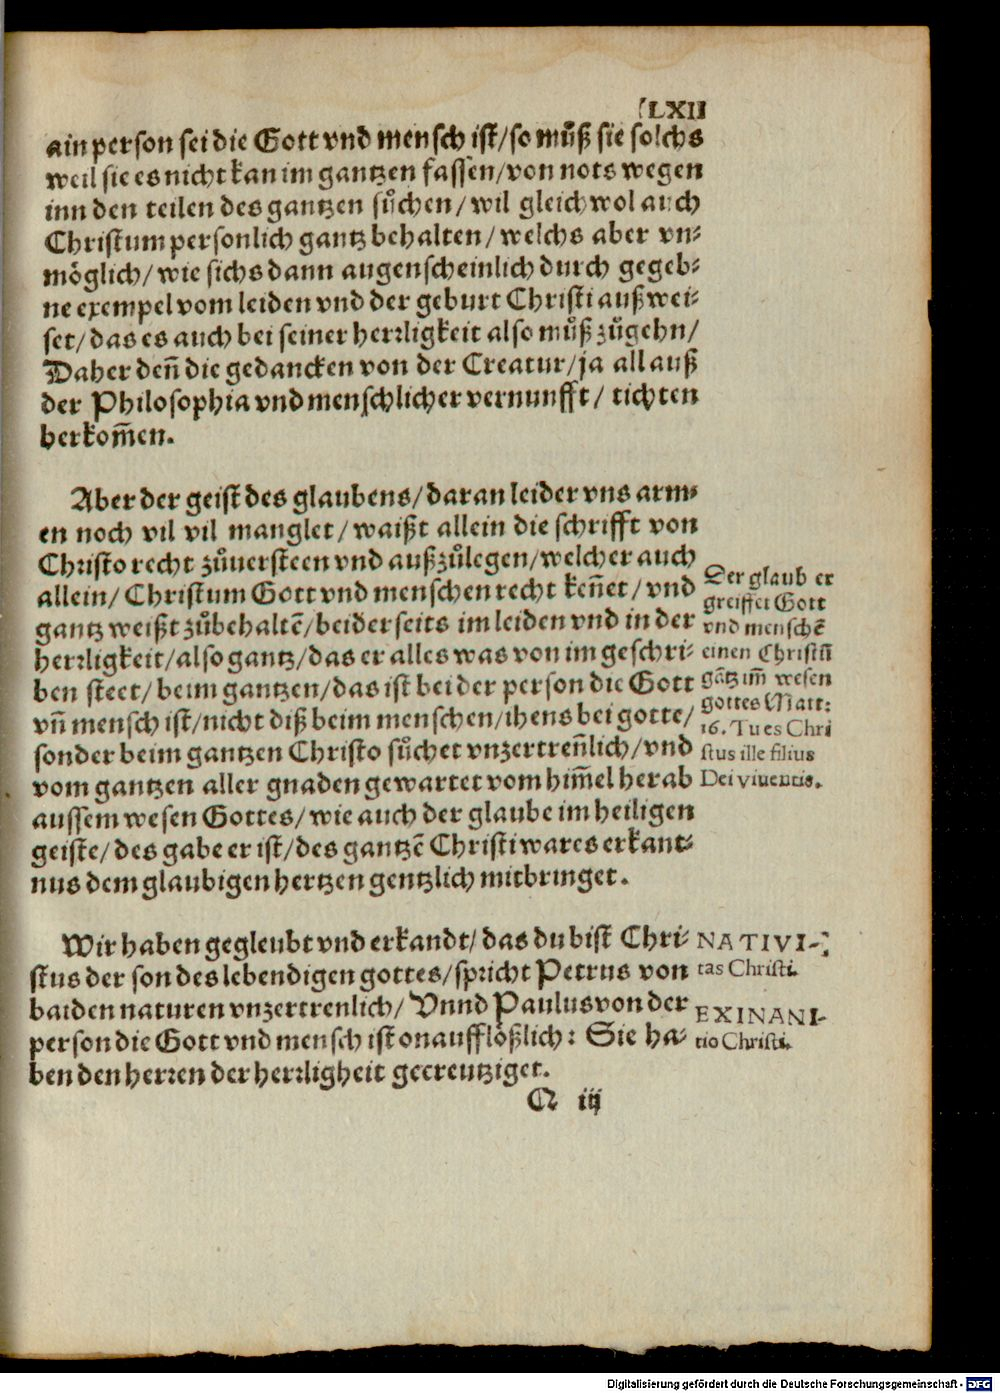 LXII
ain person sei die Gott vnd mensch ist/so muͦß sie solchs
weil sie es nicht kan im gantzen fassen/von nots wegen
inn den teilen des gantzen suͦchen/wil gleichwol auch
Christum personlich gantz behalten/welchs aber vn⸗
möglich/wie sichs dann augenscheinlich durch gegeb⸗
ne exempel vom leiden vnd der geburt Christi außwei⸗
set/das es auch bei seiner herrligkeit also muͦß zuͦgehn/
Daher den̄ die gedancken von der Creatur/ja all auß
der Philosophia vnd menschlicher vernunfft/tichten
herkom̄en.
Aber der geist des glaubens/daran leider vns arm⸗
en noch vil vil manglet/waißt allein die schrifft von
Christo recht zuͦuersteen vnd außzuͦlegen/welcher auch
allein/Christum Gott vnd menschen recht ken̄et/vnd
gantz weißt zuͦbehaltē/beiderseits im leiden vnd in der
herrligkeit/also gantz/das er alles was von im geschri⸗
ben steet/beim gantzen/das ist bei der person die Gott
vn̄ mensch ist/nicht diß beim menschen/ihens bei gotte/
sonder beim gantzen Christo suͦchet vnzertren̄lich/vnd
vom gantzen aller gnaden gewartet vom him̄el herab
aussem wesen Gottes/wie auch der glaube im heiligen
geiste/des gabe er ist/des gantzē Christi wares erkant⸗
nus dem glaubigen hertzen gentzlich mitbringet.
Der glaub er
greiffet Gott
vnd menschē
einen Christū
gātz im̄ wesen
gottes Matt:
16. Tu es Chri
stus ille filius
Dei viuentis.
Wir haben gegleubt vnd erkandt/das du bist Chri⸗
stus der son des lebendigen gottes/spricht Petrus von
baiden naturen vnzertrenlich/Vnnd Paulus von der
person die Gott vnd mensch ist onaufflößlich: Sie ha⸗
ben den herren der herrligheit gecreutziget.
NATIVI-
tas Christi.
EXINANI-
tio Christi.
Q iij
Digitalisierung gefördert durch die Deutsche Forschungsgemeinschaft - DFG